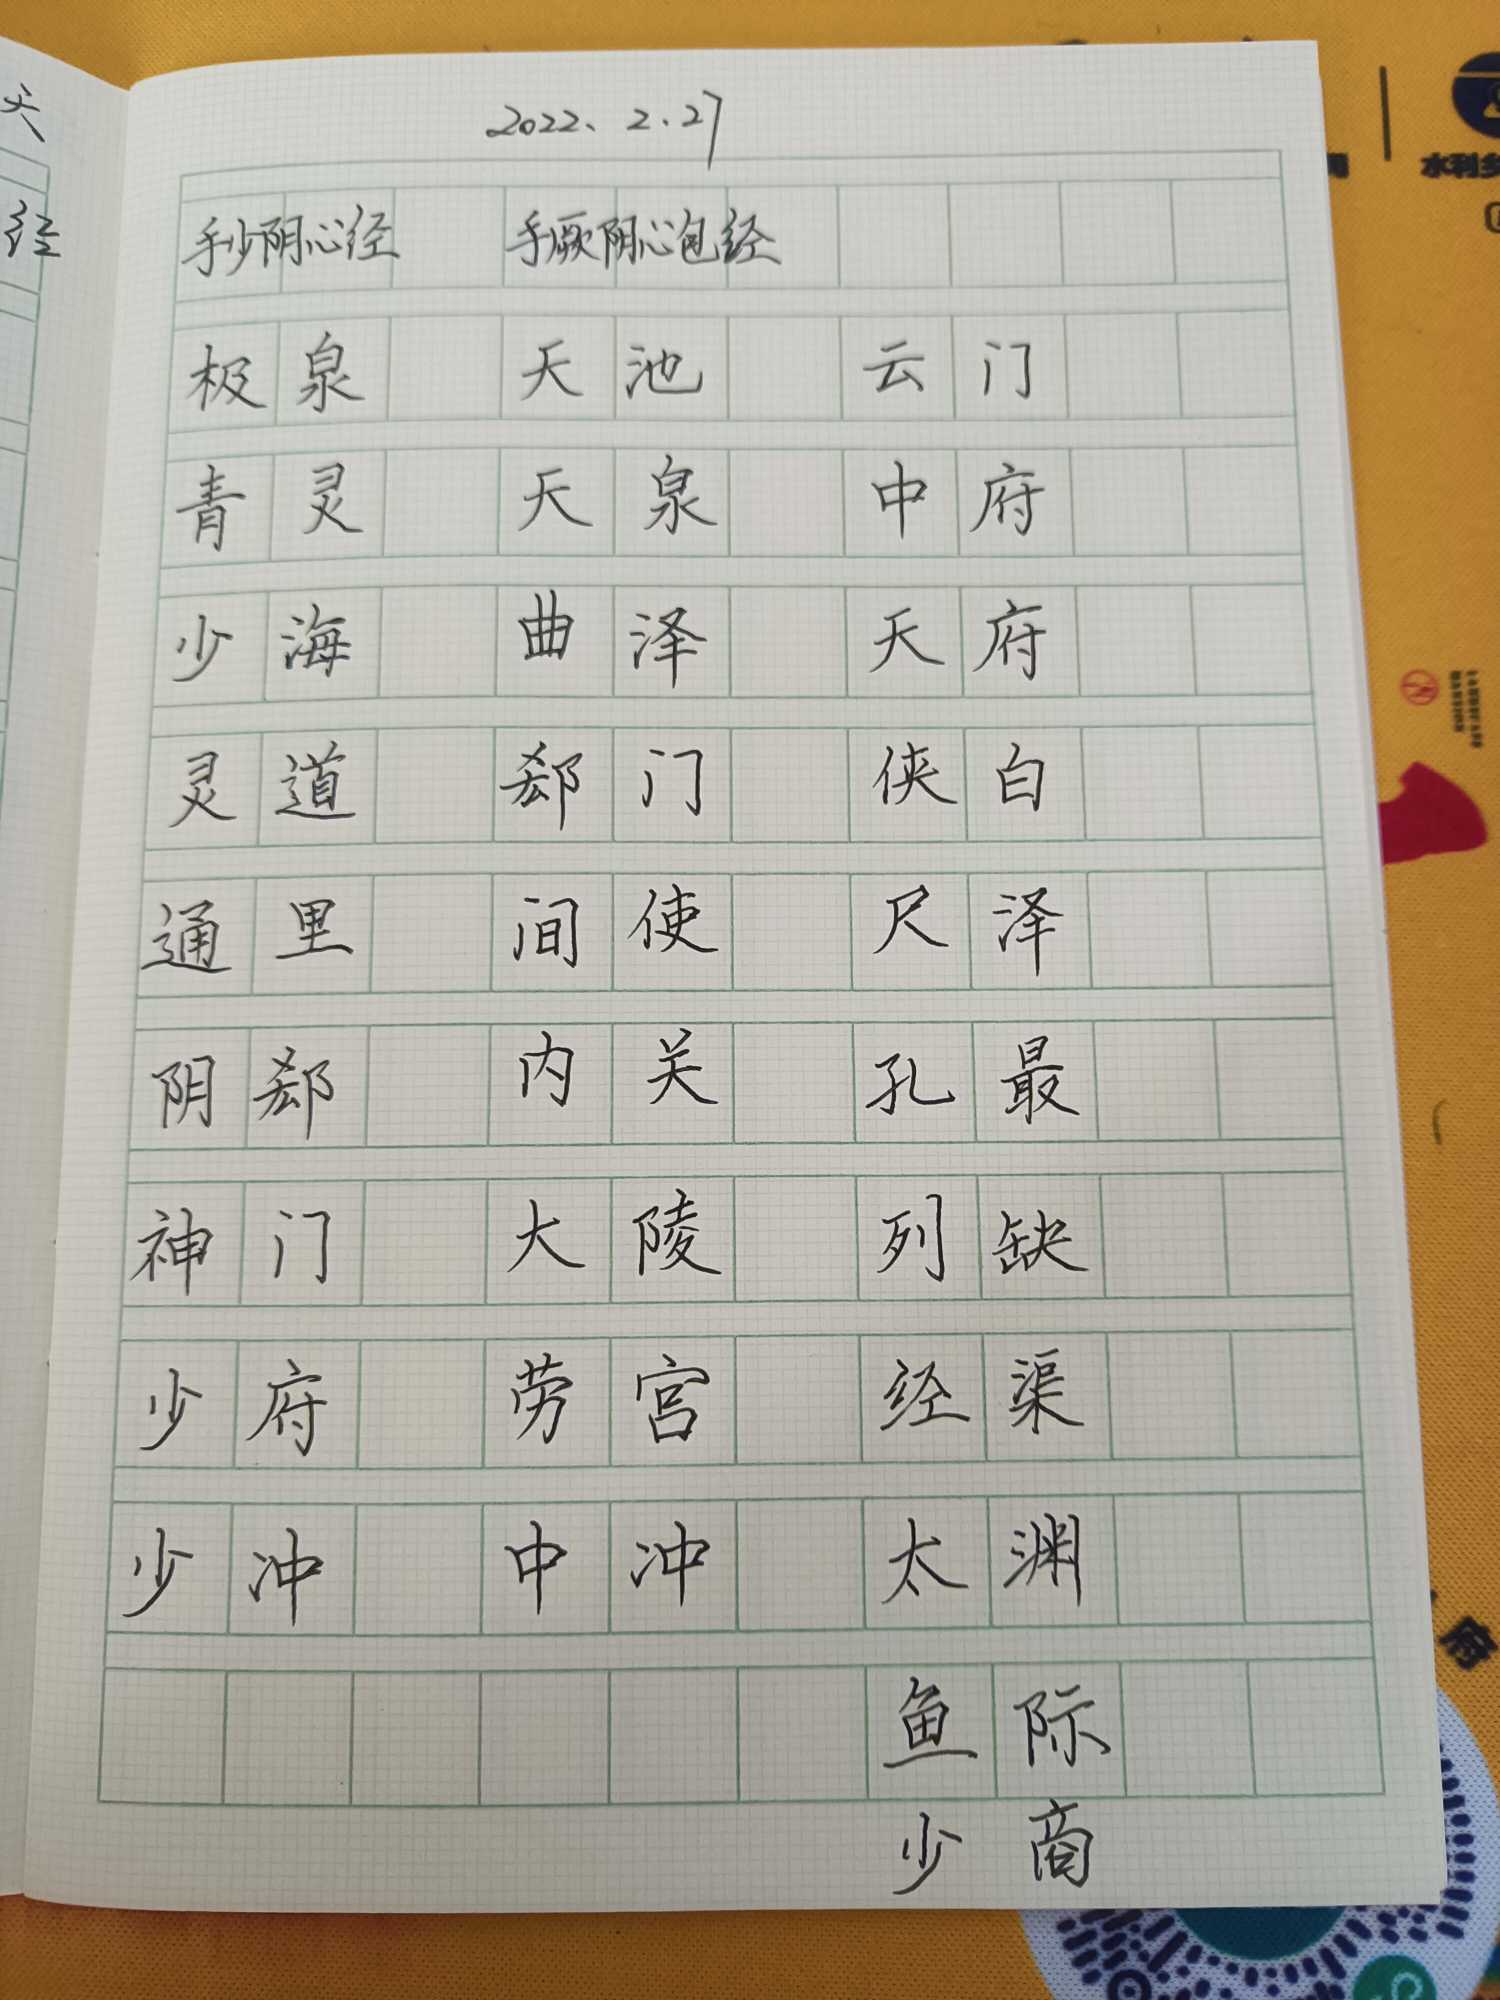 2022. 2. 27
手少阴心经 手厥阴心包经
极泉 天池 云门
青灵 天泉 中府
少海 曲泽 天府
灵道 郄门 侠白
通里 间使 尺泽
阴郄 内关 孔最
神门 大陵 列缺
少府 劳宫 经渠
少冲 中冲 太渊
鱼际
少商
天
经
水利乡
府